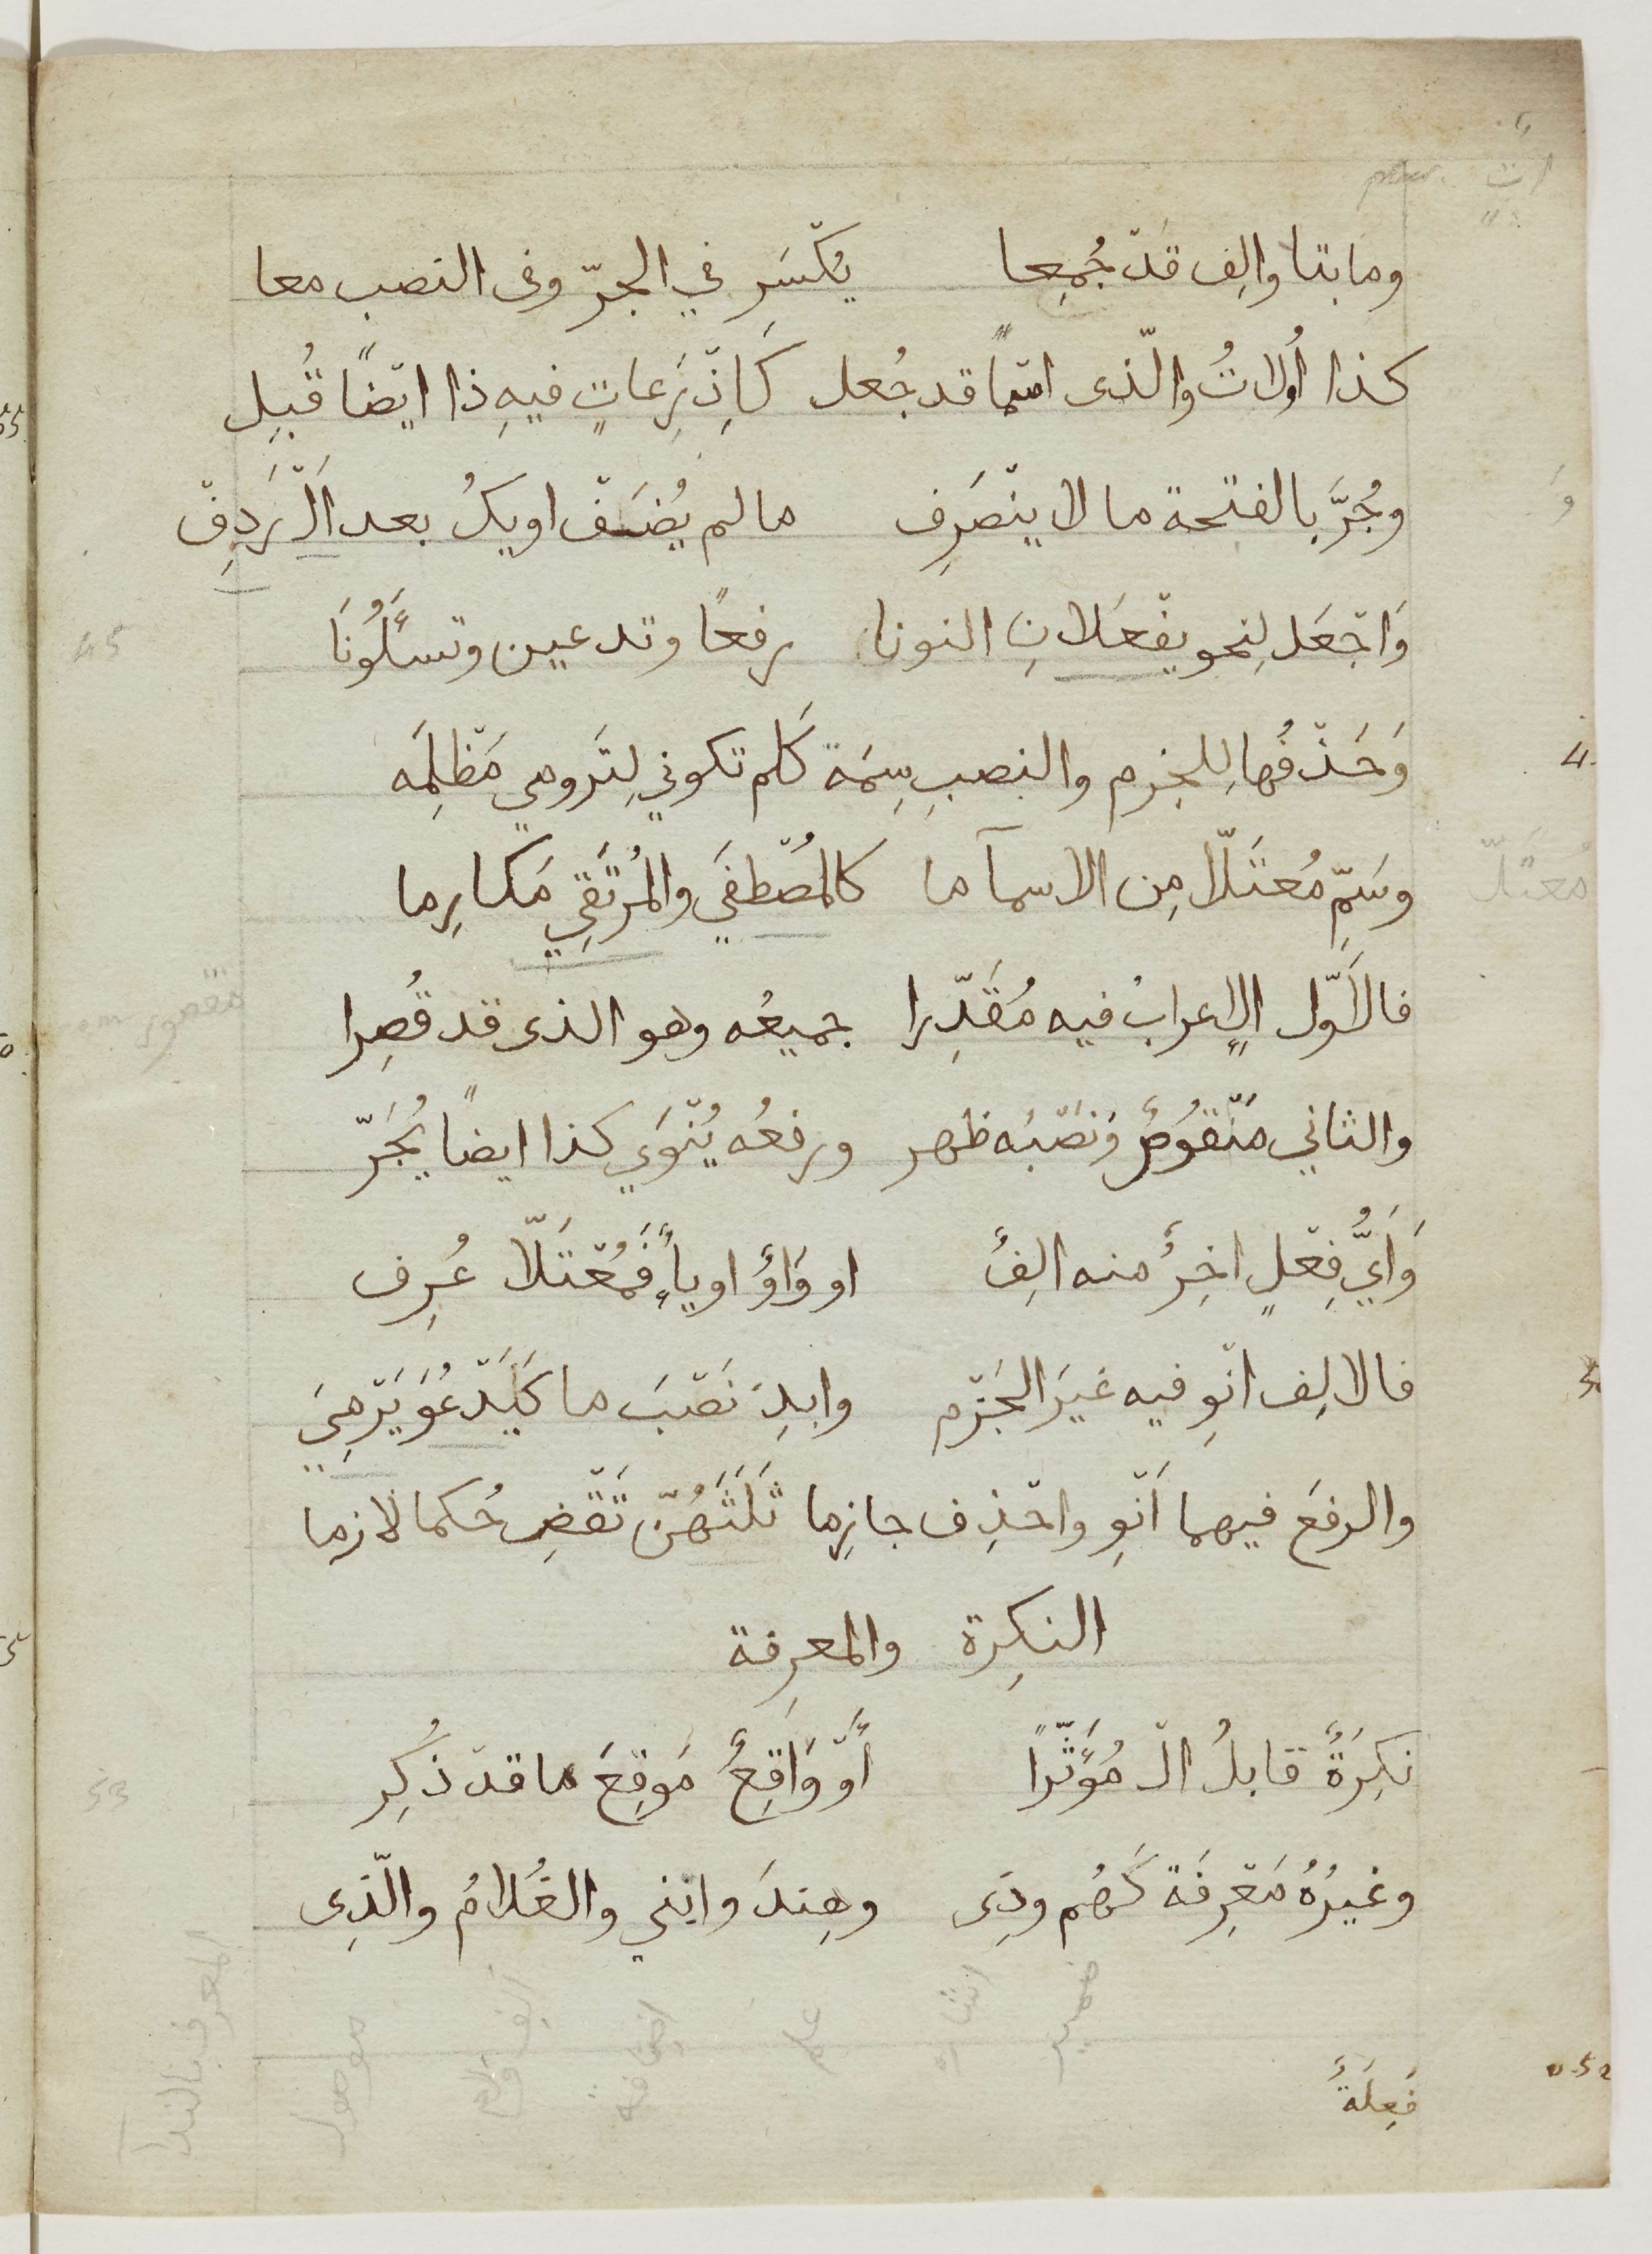 وما بتا والِف قَدْ جُمِعا يُكْسَر في الجرّ وفى النصب معا
كذا أُولاتُ والّذى اسمًا قد جُعل كَاذْرِعاتٍ فيهِ ذا ايْضًا قُبِل
وجُرَّ بالفتحة ما لا ينْصَرِف ما لم يُضَفْ او يكُ بعد اَلْ رَدِفْ
وَاجْعَل لِنحو يفْعَلانِ النونا رفعًا وتدعين وتسأَلُونَا
وَحَذْفُها لِلجزم والنصبِ سِمَة كَلم تكوني لِتَرومي مَظْلِمَه
وسَمِّ مُعْتَلّا مِن الاسمآ ما كالمُصْطفَي والمُرْتَقِي مَكارِما
فالاَوّل الاِعرابُ فيه مُقَدِّرا جميعُه وهو الذى قد قُصِرا
والثاني مَنْقوُصٌ وَنَصْبُه ظهر ورفعُه يُنْوَي كذا ايضًا يُجَرّ
وَاَيُّ فِعْلٍ اخِرٌ منه الِفٌ او وَاوٌ او ياءٌ فَمُعْتَلّا عُرِف
فالالِف انْوِ فيه غيَر الجَزْم وابدِ نَصْبَ ما كَيَدْعُوَ يَرْمِيَ
والرفعَ فيهما اَنْوِ واحْذِف جازِما ثَلَثَهُنّ تَقْضِ حُكما لازما
النكِرة والمعرِفة
نكِرَةٌ قابلُ الْ مُوَثِّرًا أَوْ وَاقِعٌ مَوقِعَ ما قدْ ذُكِر
وغيرُهُ مَعْرِفَة كَهُم وذِى وهِندَ وابْني والغُلامُ والّذِى
ضمير اشاره علم اضافة موصول المعرف بالندآ
فَعِلَةٌ
مُعتَلّ
مقصور
45
53